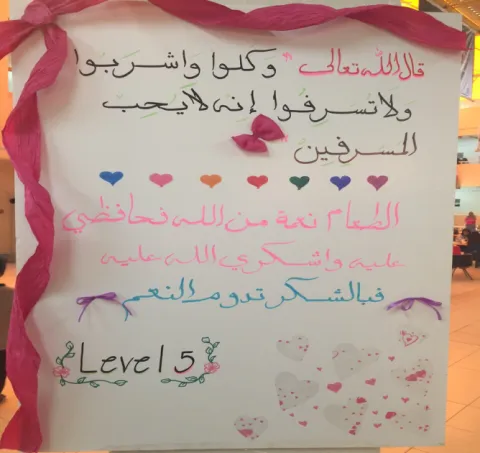 قال الله تعالى " وكلوا واشربوا
ولا تسرفوا إنه لا يحب
المسرفين "
الطعام نعمة من الله فحافظي
عليه واشكري الله عليه
فبالشكر تدوم النعم
Level 5